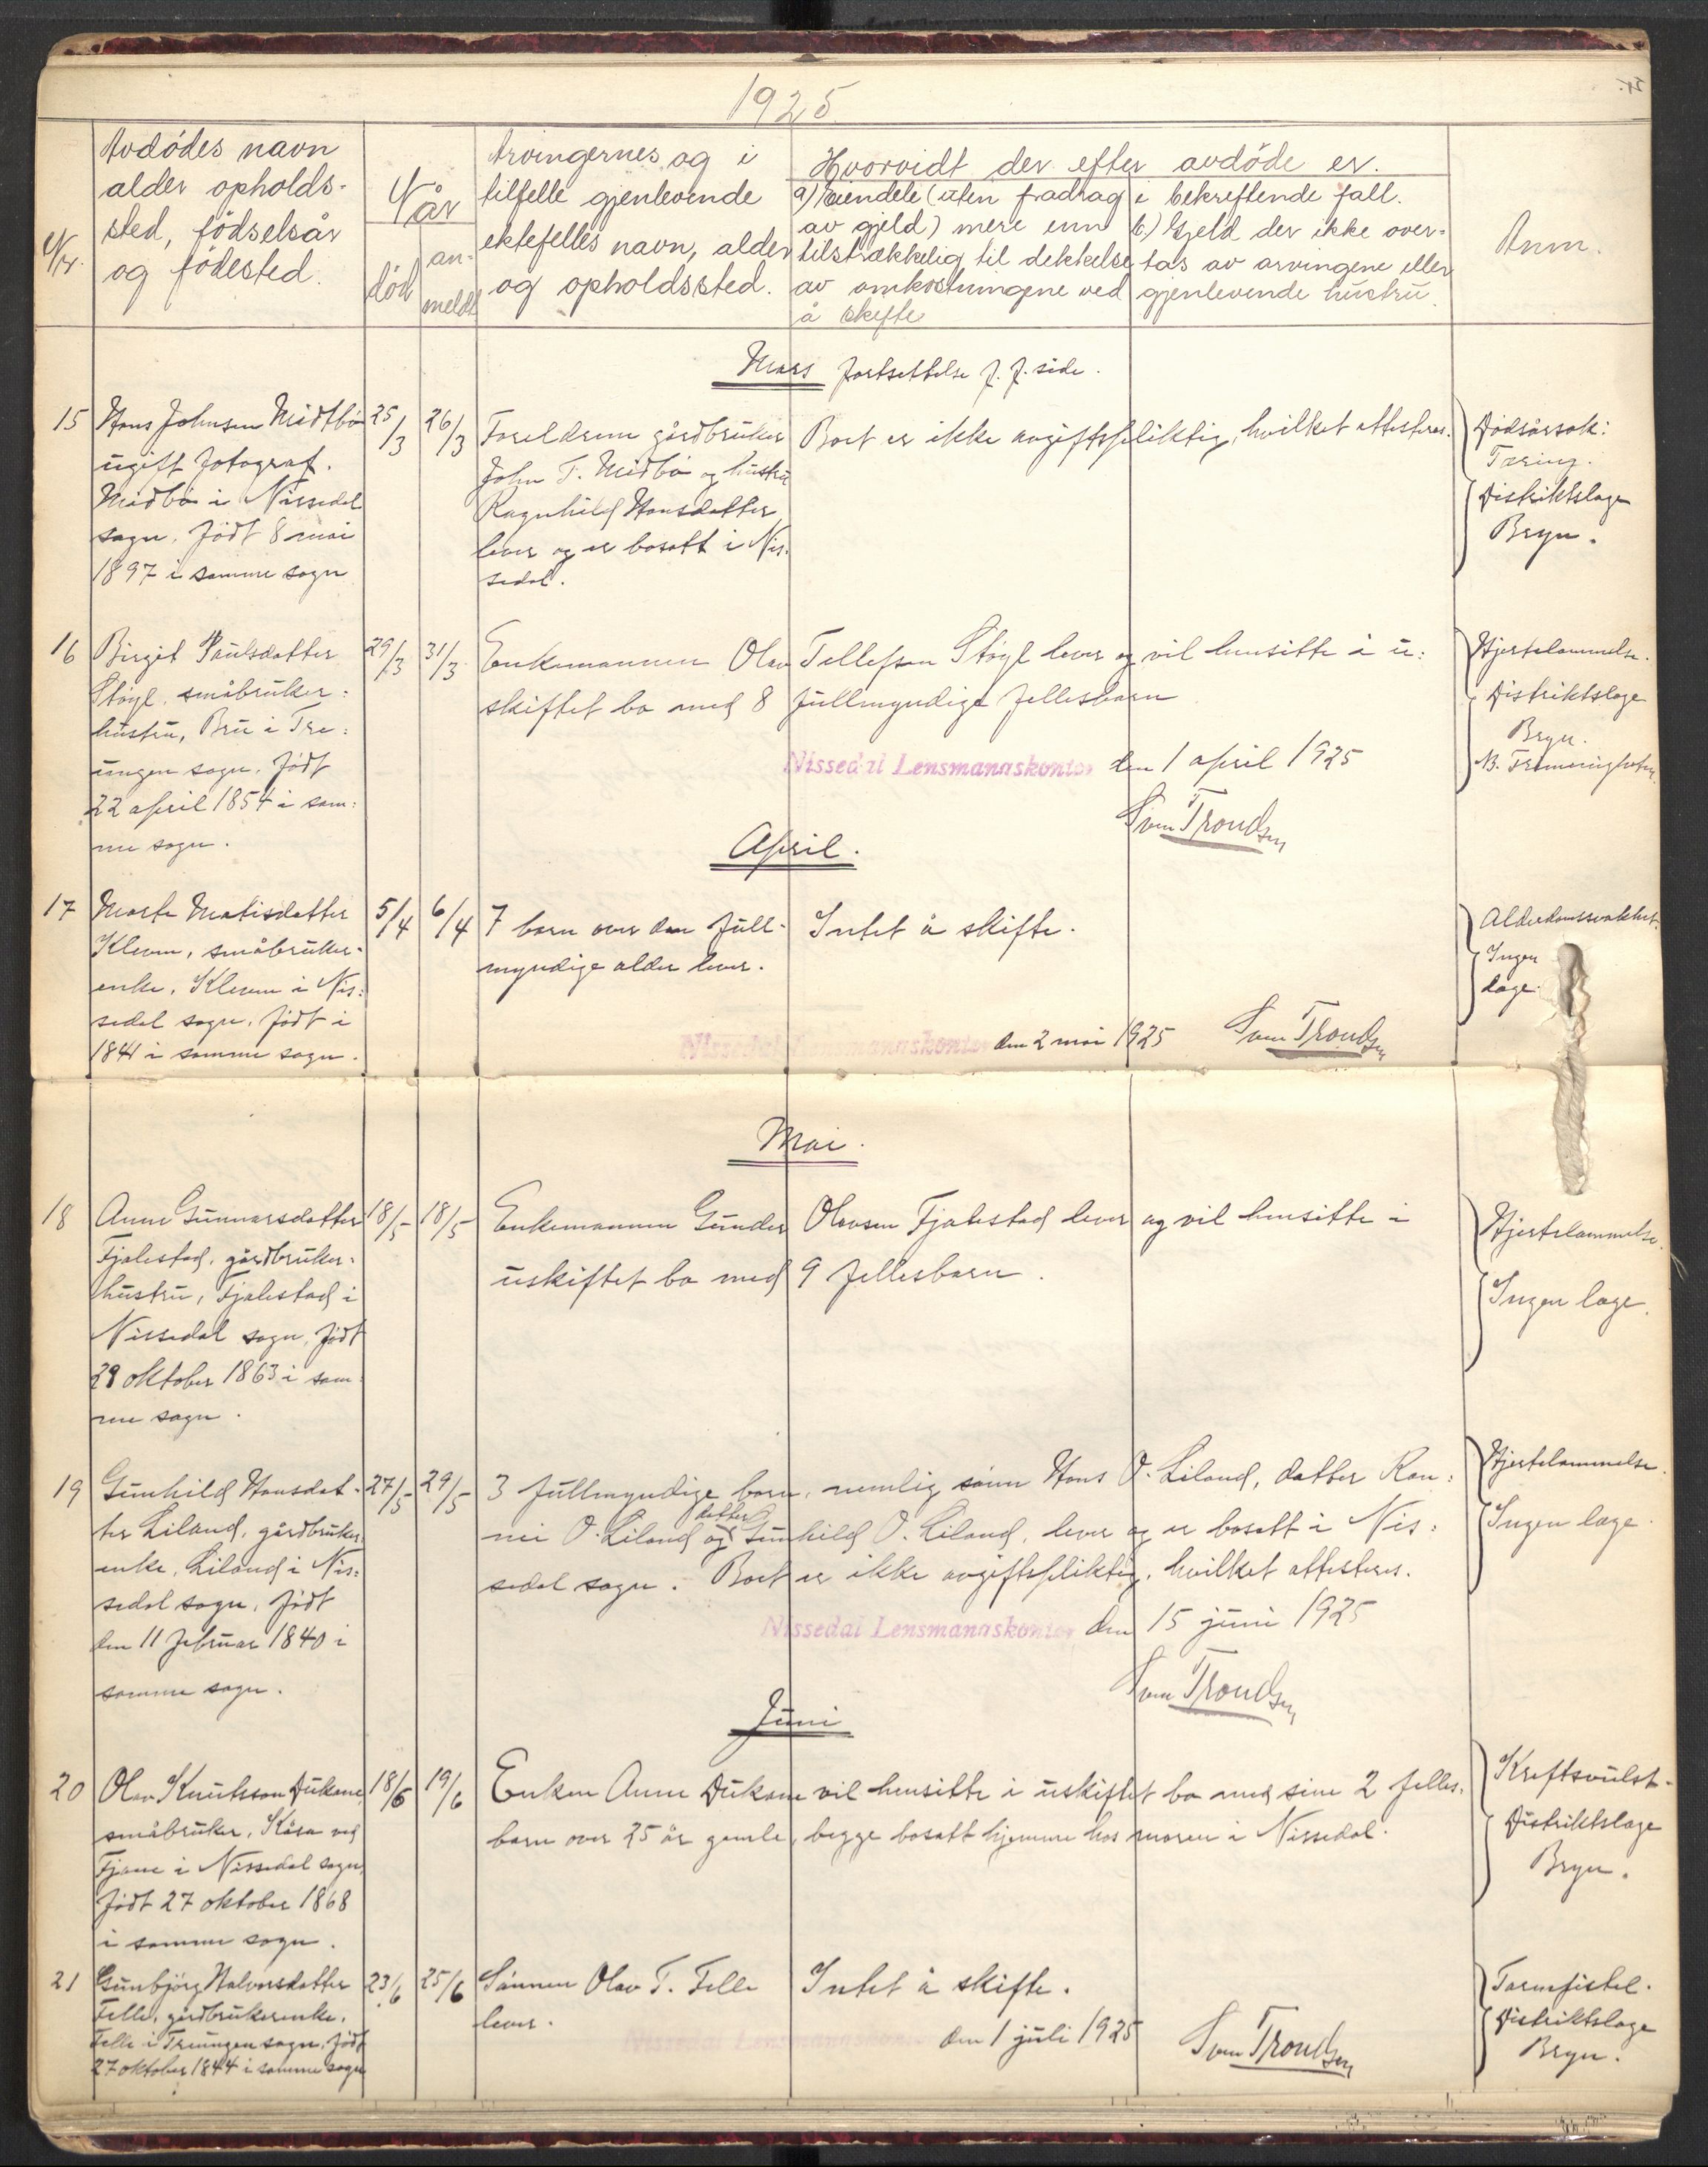 1925
Nr.
Avdödes navn
alder opholds-
sted, födselsår
og födested.
Når
död
an-
meldt
Arvingernes og i
tilfelle gjenlevende
ektefelles navn, alder
og opholdssted.
Hvorvidt der efter avdöde er.
a) Eiendele (uten fradrag
av gjeld) mere enn
tilstrækkelig til dekkelse
av omkostningene ved
å skifte
i bekreftende fall.
b) Gjeld der ikke over-
tas av arvingene eller
gjenlevende hustru.
Anm.
Mars fortsettelse f. f. side.
15
Hans Johnsen Midtbö
ugift fotograf.
Midbö i Nissedal
sogn. Födt 8 mai
1897 i samme sogn
25/3
26/3
Foreldrene gårdbruker
John T. Midbö og hustru
Ragnhild Hansdatter
lever og er bosatt i Nis-
sedal.
Boet er ikke avgiftspliktig, hvilket attesteres.
Dödsårsak:
Tæring.
Distriktslæge
Bryn.
16
Birgit Paulsdatter
Stöyl, småbruker=
hustru, Bru i Tre=
ungen sogn. Födt
22 april 1854 i sam=
me sogn.
29/3
31/3
Enkemannen Olav Tellefsen Stöyl lever og vil hensitte i u=
skiftet bo med 8 fullmyndige fellesbarn
Nissedal Lensmannskontor den 1 april 1925
Sven Trondsen
Hjertelammelse.
Distriktslæge
Bryn.
April.
17
Marte Matisdatter
Klevin, småbruker-
enke, Klevin i Nis=
sedal sogn. Födt i
1841 i samme sogn.
5/4
6/4
7 barn over den full-
myndige alder lever.
Intet å skifte.
Nissedal Lensmannskontor den 2 mai 1925
Sven Trondsen
Alderdomssvakhet.
Ingen
læge.
Mai.
18
Anne Gunnarsdatter
Fjalestad, gårdbruker=
hustru, Fjalestad i
Nissedal sogn. Födt
29 oktober 1863 i sam=
me sogn.
18/5
18/5
Enkemannen Gunder Olavsen Fjalestad lever og vil hensitte i
uskiftet bo med 9 fellesbarn.
Hjertelammelse.
Ingen læge.
19
Gunhild Hansdat-
ter Liland, gårdbruker
enke, Liland i Nis=
sedal sogn. Födt
den 11 februar 1840 i
samme sogn.
27/5
29/5
3 fullmyndige barn, nemlig sönn Hans O. Liland, datter Ran=
nei O. Liland og datter Gunhild O. Liland, lever og er bosatt i Nis=
sedal sogn. Boet er ikke avgiftspliktig, hvilket attesteres.
Nissedal Lensmannskontor den 15 juni 1925
Sven Trondsen
Hjertelammelse.
Ingen læge.
Juni
20
Olav Knutsson Dukane
småbruker, Kåsa ved
Fjone i Nissedal sogn,
födt 27 oktober 1868
i samme sogn.
18/6
19/6
Enken Anne Dukane vil hensitte i uskiftet bo med sine 2 felles-
barn over 25 år gamle, begge bosatt hjemme hos moren i Nissedal.
Kreftsvulst.
Distriktslæge
Bryn.
21
Gunbjörg Halvorsdatter
Felle, gårdbrukerenke,
Felle i Treungen sogn. Födt
27 oktober 1844 i samme sogn
23/6
25/6
Sönnen Olav T. Felle
lever.
Intet å skifte.
Nissedal Lensmannskontor den 1 juli 1925
Sven Trondsen
Tarmfistel.
Distriktslæge
Bryn.